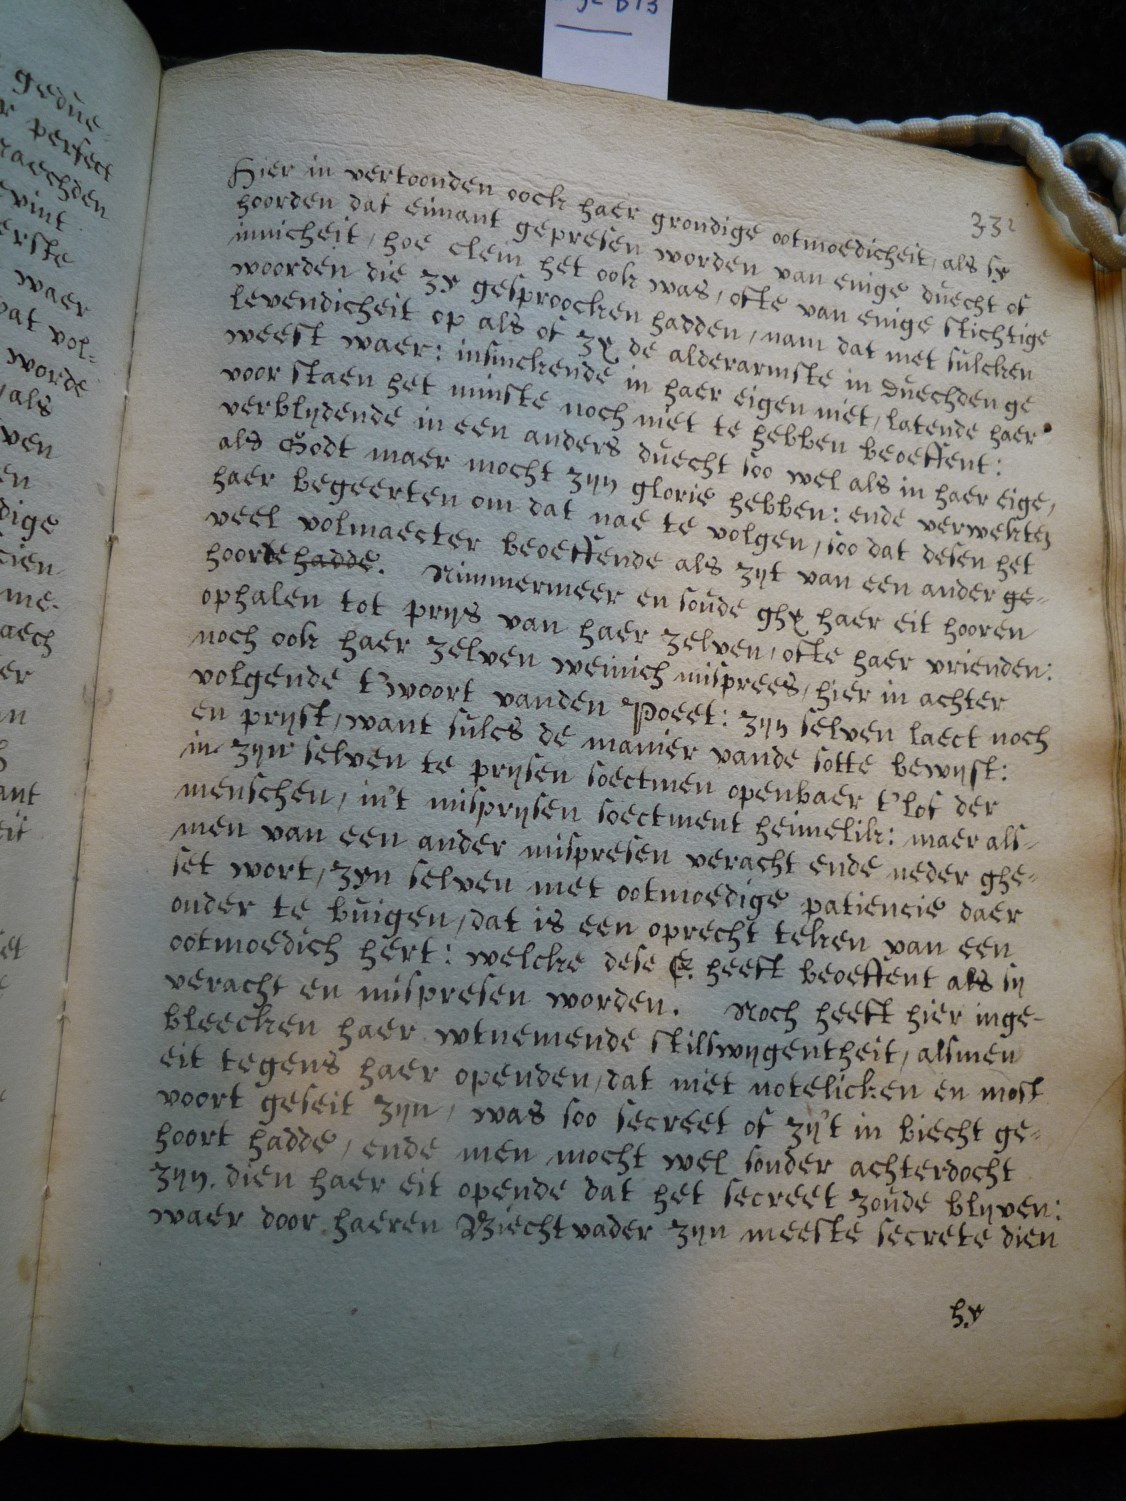 332
Hier in vertoonden oock haer grondige ootmoedicheit, als sy
hoorden dat eimant gepresen worden van enige duecht of
innicheit, hoe clein het ook was, ofte van enige stichtige
woorden die zy gesproocken hadden, nam dat met sulcken
levendicheit op als of zy de alderarmste in duechden ge
weest waer: insinckende in haer eigen niet, latende haer
voor staen het minste noch niet te hebben beoeffent:
verblijdende in een anders duecht soo wel als in haer eige,
als Godt maer mocht zijn glorie hebben: ende verwekten
haer begeerten om dat nae te volgen, soo dat desen het
veel volmaecter beoeffende als zijt van een ander ge-
hoorde hadde. Nimmermeer en soude ghy haer eit hooren
ophalen tot prijs van haer zelven, ofte haer vrienden:
noch ook haer zelven weinich misprees, hier in achter
volgende t'woort vanden Poeet: zijn selven laect noch
en prijst, want sulcs de manier vande sotte bewijst:
in zijn selven te prijsen soectmen openbaer t'lof der
menschen, in't misprijsen soectment heimelik: maer als-
men van een ander mispresen veracht ende neder ghe-
set wort, zyn selven met ootmoedige patiencie daer
onder te buigen, dat is een oprecht teken van een
ootmoedich hert: welcke dese E. heeft beoeffent als sij
veracht en mispresen worden. Noch heeft hier inge-
bleecken haer wtnemende stilswijgentheit, alsmen
eit tegens haer openden, dat niet notelicken en most
voort geseit zijn, was soo secreet of zij't in biecht ge-
hoort hadde, ende men mocht wel sonder achterdocht
zijn. dien haer eit opende dat het secreet zoude blijven:
waer door haeren Biechtvader zijn meeste secrete dien
hy
gedue-
perfect
vint
waer
vol-
worde
als